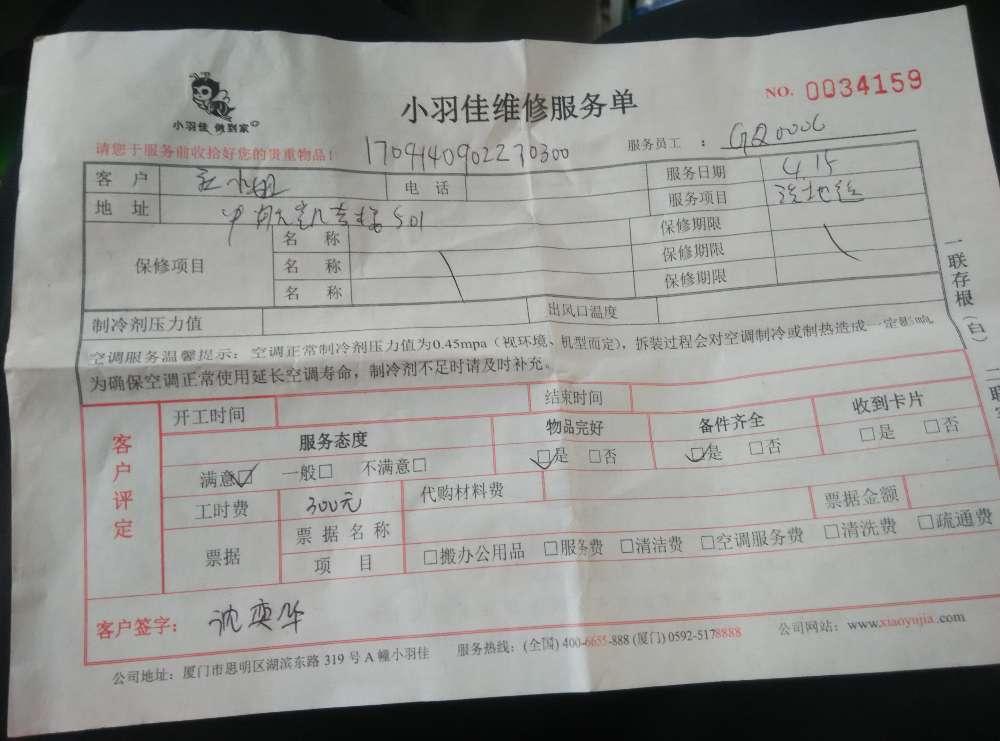 小羽佳 做到家
小羽佳维修服务单
NO. 0034159
请您于服务前收拾好您的贵重物品!
1709140902270300
服务员工 : GQ0006
客 户 小姐 电 话 服务日期 4.15
地 址 501 服务项目 洗地毯
保修项目
名 称 保修期限
名 称 保修期限
名 称 保修期限
制冷剂压力值 出风口温度
空调服务温馨提示: 空调正常制冷剂压力值为0.45mpa (视环境、机型而定), 拆装过程会对空调制冷或制热造成一定影响。
为确保空调正常使用延长空调寿命, 制冷剂不足时请及时补充。
一联存根(白)
二联
客户评定
开工时间 结束时间
服务态度 物品完好 备件齐全 收到卡片
满意☑ 一般□ 不满意□ ☑是 □否 ☑是 □否 □是 □否
工时费 300元 代购材料费 票据金额
票据 票据名称
项 目 □搬办公用品 □服务费 □清洁费 □空调服务费 □清洗费 □疏通费
客户签字: 沈奕华
公司地址: 厦门市思明区湖滨东路 319 号 A 幢小羽佳 服务热线: (全国) 400-6655-888 (厦门) 0592-5178888 公司网站: www.xiaoyujia.com